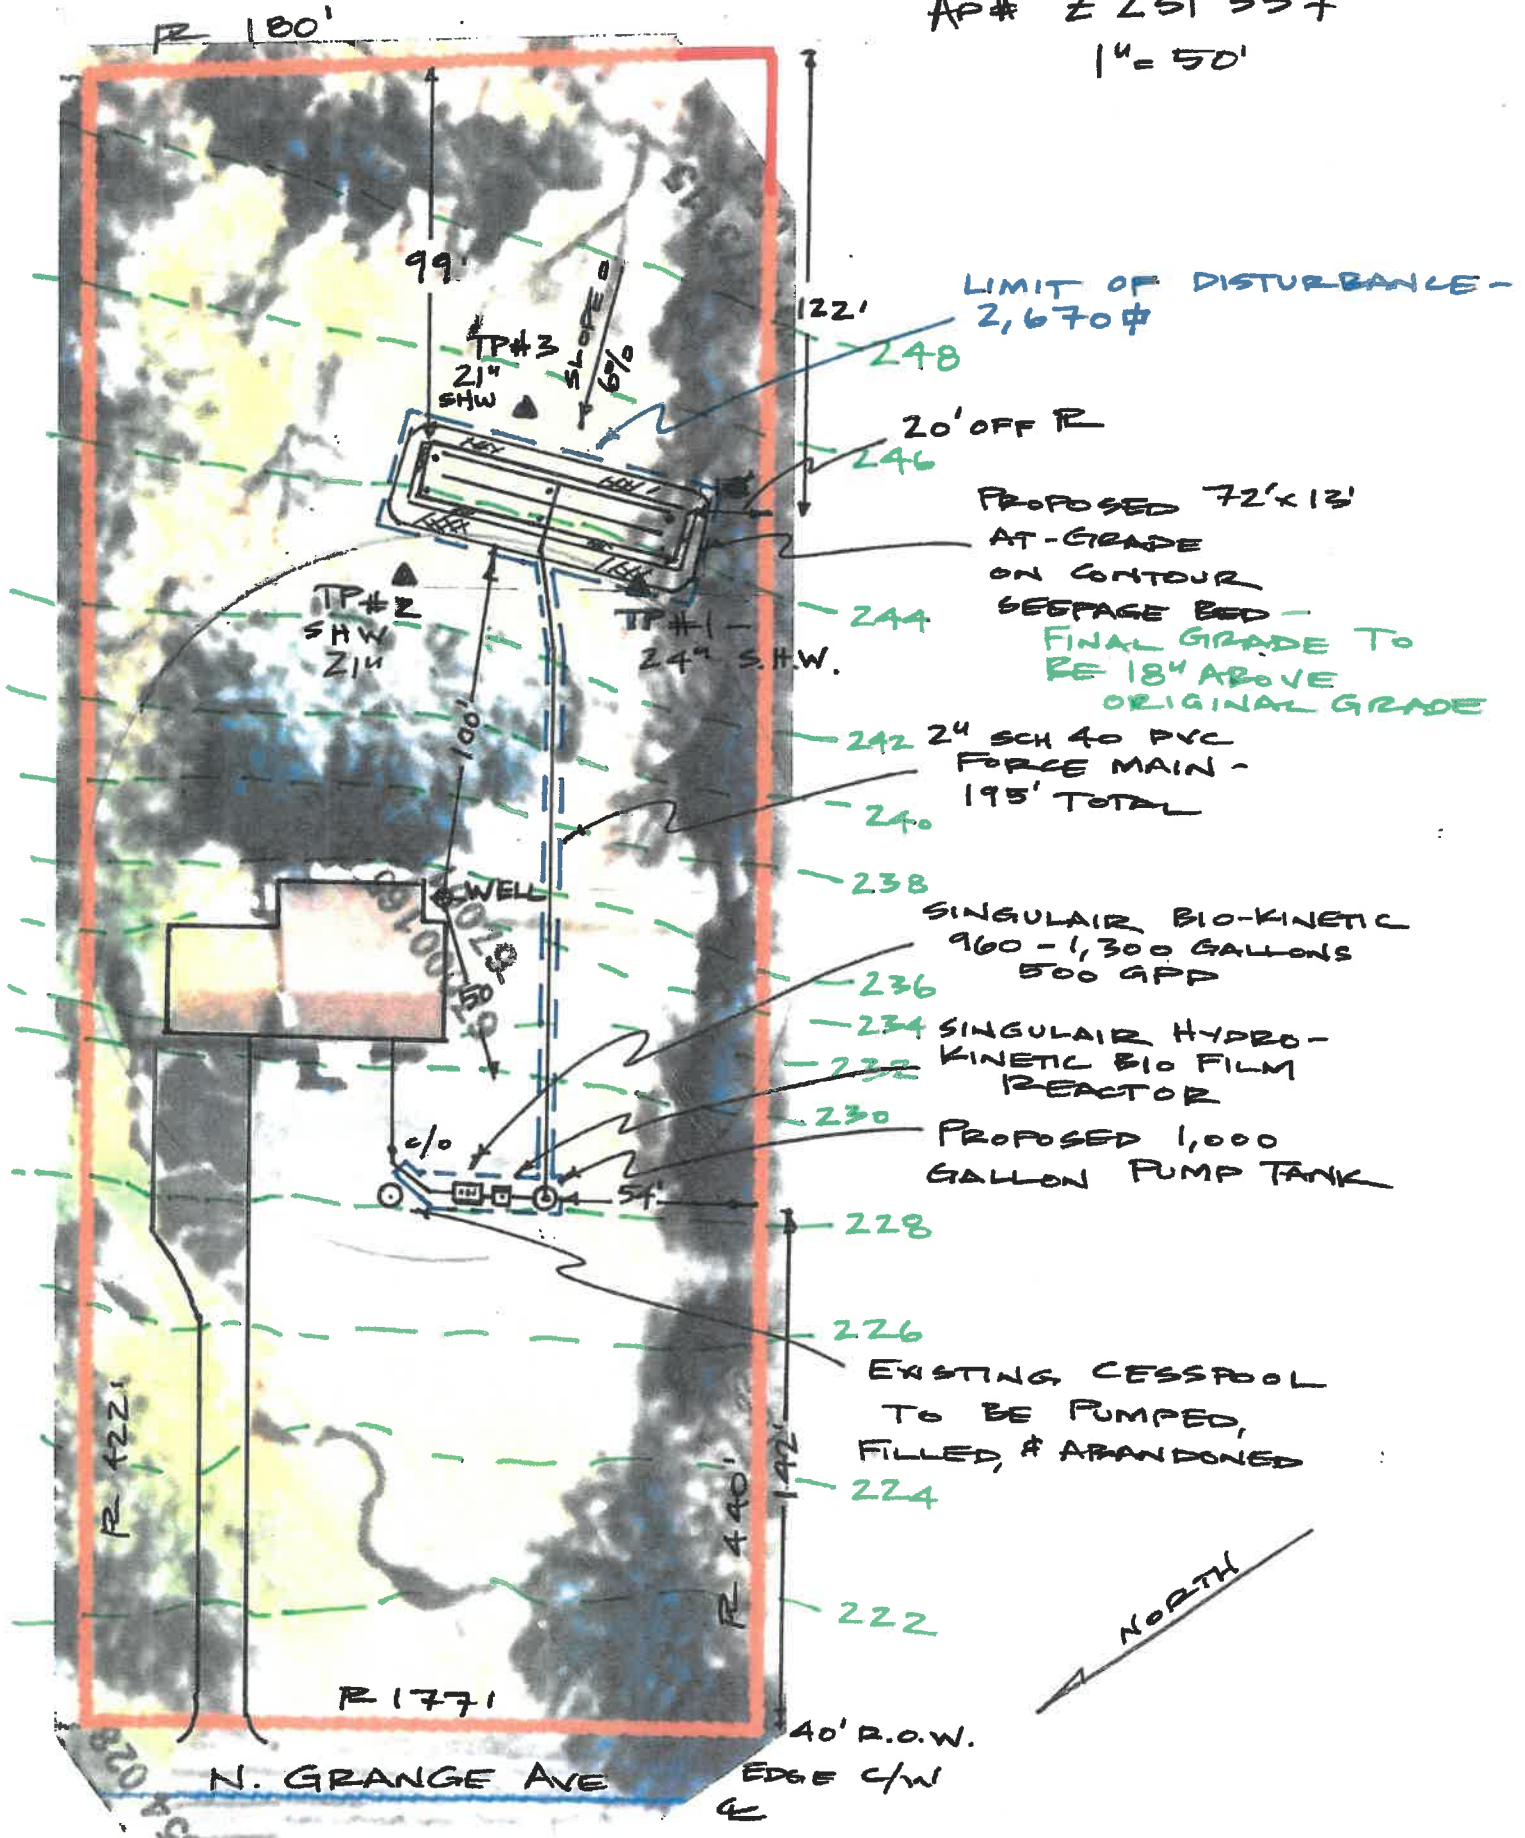 AP# Z 251 557
1" = 50'
PL 180'
99'
122'
SLOPE =
6%
TP#3
21"
SHW
LIMIT OF DISTURBANCE -
2,670
248
20' OFF PL
246
PROPOSED 72' x 13'
AT-GRADE
ON CONTOUR
SEEPAGE BED -
FINAL GRADE TO
BE 18" ABOVE
ORIGINAL GRADE
244
TP#2
SHW
21"
TP#1 -
24" S.H.W.
100'
242
2" SCH 40 PVC
FORCE MAIN -
195' TOTAL
240
238
WELL
50'
SINGULAIR BIO-KINETIC
960 - 1,300 GALLONS
500 GPD
236
234
SINGULAIR HYDRO-
KINETIC BIO FILM
REACTOR
232
230
PROPOSED 1,000
GALLON PUMP TANK
c/o
54'
228
226
EXISTING CESSPOOL
TO BE PUMPED,
FILLED, & ABANDONED
PL 422'
PL 440'
142'
224
222
NORTH
PL 177'
40' R.O.W.
EDGE C/W
CL
N. GRANGE AVE
028